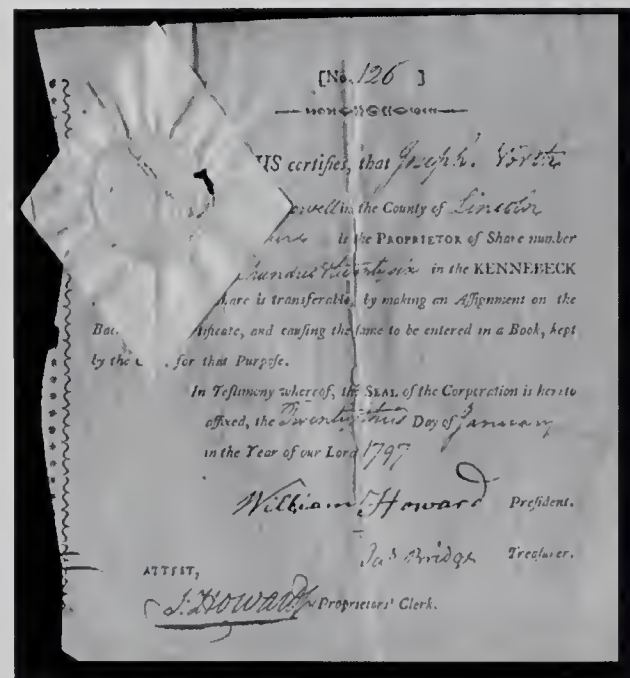 [No. 126 ]
HIS certifies, that Joseph North
owell in the County of Lincoln
is the PROPRIETOR of Share number
hundred twenty six in the KENNEBECK
hare is transferable, by making an Assignment on the
Bac tificate, and causing the same to be entered in a Book, kept
by the for that Purpose.
In Testimony whereof, the SEAL of the Corporation is hereto
affixed, the Day of January
in the Year of our Lord 1797
William Howard President.
Jas Bridge Treasurer.
ATTEST,
S. Howard Proprietors' Clerk.